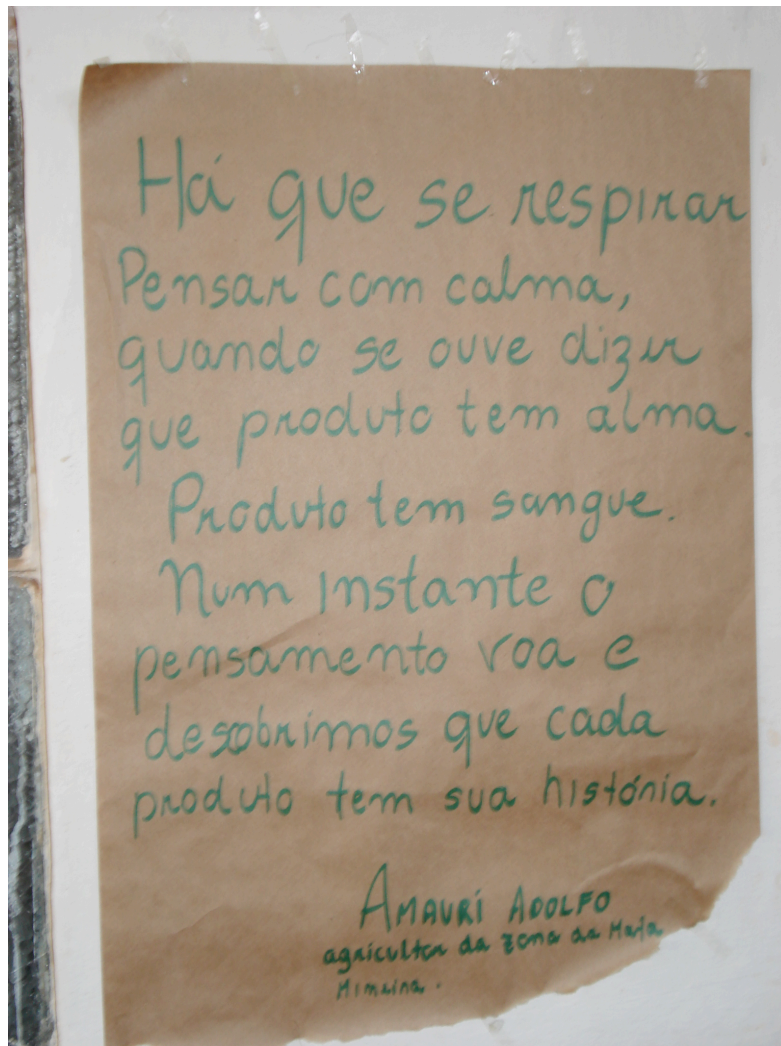 Há que se respirar
Pensar com calma,
quando se ouve dizer
que produto tem alma.
Produto tem sangue.
Num instante o
pensamento voa e
descobrimos que cada
produto tem sua história.
AMAURI ADOLFO
agricultor da zona da Mata
Mineira.